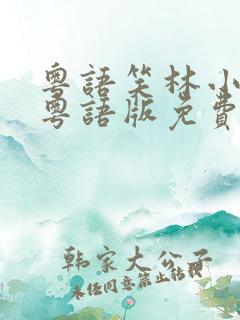 粵語笑林小
粵語版免費
韩家大公子
未任同意禁止转载